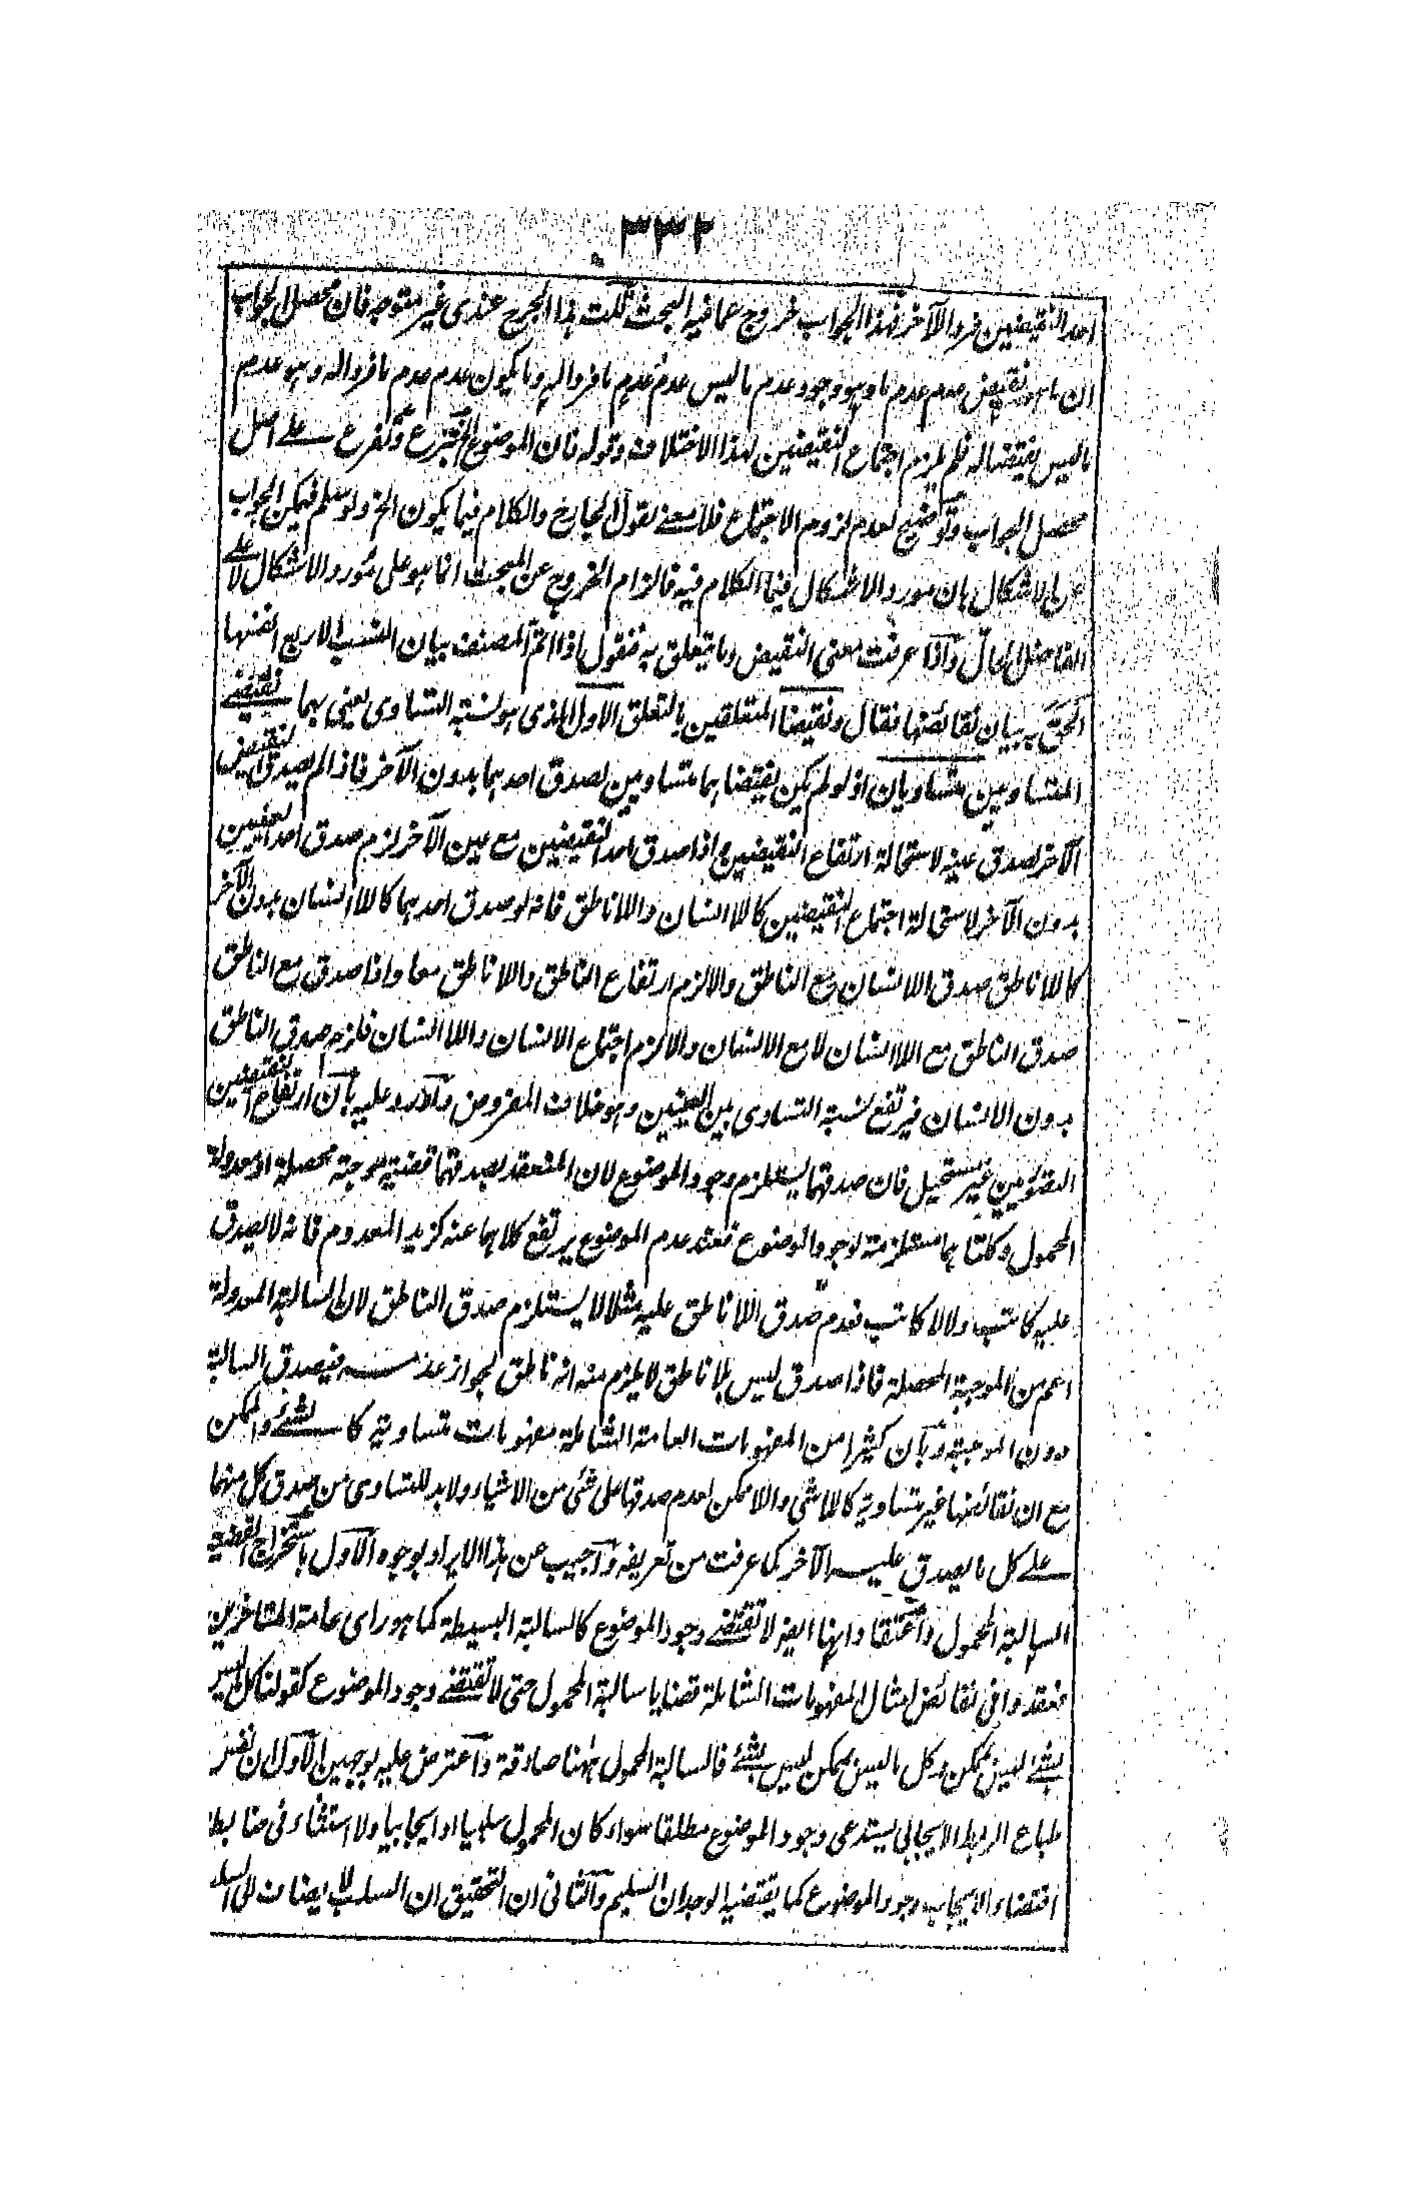 ٣٣٢
احد النقيضين فردا لآخر فهذا الجواب خروج عما فيه البحث قلت هذا الجرح عندى غير متوجه فان محصل الجواب
ان ما هو نقيض عدم عدم ما وهو وجود عدم ما ليس عدم عدم ما فردا له وما يكون عدم عدم ما فردا له وهو عدم
ما ليس نقيضا له فلم يلزم اجتماع النقيضين لهذا الاختلاف وقوله فان الموضوع الخ تفرع على اصل
محصل الجواب وتوضيح لعدم لزوم الاجتماع فلا معنى لقول الجارح والكلام فيما يكون الخ ولو سلم فيكن الجواب
عن الاشكال بان مورد الاشكال فيما الكلام فيه فالزام الخروج عن المبحث انما هو على مورد الاشكال لا على
الفاضل الحال واذا عرفت معنى النقيض وما يتعلق به فنقول اذا اتم المصنف بيان النسب الاربع انفسها
الحق به بيان نقائضها فقال ونقيضا المتعلقين بالتعلق الاول الذى هو نسبة التساوى يعنى بهما نقيضى
المتساويين متساويان اذ لو لم يكن نقيضاهما متساويين لصدق احدهما بدون الآخر فاذا لم يصدق النقيض
الآخر لصدق عينه لاستحالة ارتفاع النقيضين واذا صدق احد النقيضين مع عين الآخر لزم صدق احد العينين
بدون الآخر لاستحالة اجتماع النقيضين كاللاانسان واللاناطق فانه لو صدق احدهما كاللاانسان بدون الآخر
كاللاناطق صدق اللاانسان مع الناطق والا لزم ارتفاع الناطق واللاناطق معا واذا صدق مع الناطق
صدق الناطق مع اللاانسان لا مع الانسان والا لزم اجتماع الانسان واللاانسان فلزم صدق الناطق
بدون الانسان فيرتفع نسبة التساوى بين العينين وهو خلاف المفروض واورد عليه بان ارتفاع النقيضين
التصوريين غير مستحيل فان صدقهما يستلزم وجود الموضوع لان المنعقد بصدقهما قضية موجبة محصلة او معدولة
المحمول وكلتاهما مستلزمتة لوجود الموضوع فعند عدم الموضوع يرتفع كلاهما عنه كزيد المعدوم فانه لا يصدق
عليه كاتب ولا لا كاتب فعدم صدق اللاناطق عليه مثلا لا يستلزم صدق الناطق لان السالبة المعدولة
اعم من الموجبة المحصلة فاذا صدق ليس بلا ناطق لا يلزم منه انه ناطق لجواز عدمه فيصدق السالبة
دون الموجبة وبان كثيرا من المفهومات العامة الشاملة مفهومات متساوية كالشئ والممكن
مع ان نقائضها غير متساوية كاللاشئ واللاممكن لعدم صدقها على شئ من الاشياء ولا بد للتساوى من صدق كل منهما
على كل ما يصدق عليه الآخر كما عرفت من تعريفه واجيب عن هذا الايراد بوجوه الاول باستخراج القضية
السالبة المحمول واعتقادانها ايضا لا تقتضى وجود الموضوع كالسالبة البسيطة كما هو راى عامة المتاخرين
فعقدوا فى نقائض امثال المفهومات الشاملة قضايا سالبة المحمول حتى لا تقتضى وجود الموضوع كقولنا كل ما ليس
بشئ ليس بممكن وكل ما ليس بممكن ليس بشئ فالسالبة المحمول ههنا صادقة واعترض عليه بوجهين الاول ان نفس
طباع الربط الايجابى يستدعى وجود الموضوع مطلقا سواء كان المحمول سلبيا او ايجابيا ولا استثناء فى ضابطة
اقتضاء الايجاب وجود الموضوع كما يقتضيه الوجدان السليم والثانى ان التحقيق ان السلب لا يضاف الى السلب